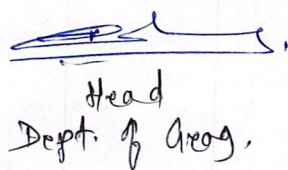 Head
Dept. of Geog.